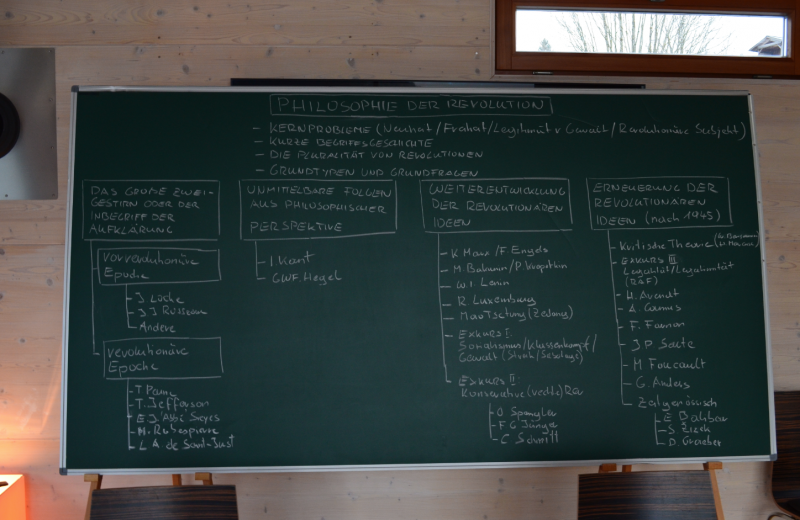 PHILOSOPHIE DER REVOLUTION
- KERNPROBLEME (Neuheit/Freiheit/Legitimität v Gewalt/Revolutionäre Subjekt)
- KURZE BEGRIFFSGESCHICHTE
- DIE PLURALITÄT VON REVOLUTIONEN
- GRUNDTYPEN UND GRUNDFRAGEN
DAS GROßE ZWEI-
GESTIRN ODER DER
INBEGRIFF DER
AUFKLÄRUNG
vorrevolutionäre
Epoche
- J. Locke
- J J Rousseau
- Andere
revolutionäre
Epoche
- T Paine
- T. Jefferson
- E J 'Abbé' Sieyes
- M. Robespierre
- L A de Saint-Just
UNMITTELBARE FOLGEN
AUS PHILOSOPHISCHER
PERSPEKTIVE
- I. Kant
- G.W.F. Hegel
WEITERENTWICKLUNG
DER REVOLUTIONÄREN
IDEEN
- K Marx/F. Engels
- M. Bakunin/P. Kropotkin
- W.I. Lenin
- R. Luxemburg
- Mao Tsetung (Zedong)
- EXKURS I.
Sozialismus/Klassenkampf/
Gewalt (Streik/Sabotage)
- EXKURS II:
Konservative (rechte) Rev
- O Spengler
- F G Jünger
- C Schmitt
ERNEUERUNG DER
REVOLUTIONÄREN
IDEEN (nach 1945)
- Kritische Theorie (W. Benjamin/H. Marcuse)
- EXKURS III
Legalität/Legitimität
(RAF)
- H. Arendt
- A. Camus
- F. Fanon
- J P Sartre
- M Foucault
- G. Anders
- Zeitgenössisch
- S. Žižek
- D. Graeber